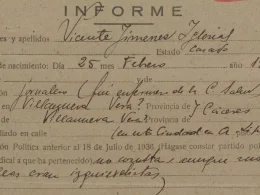 INFORME
es y apellidos Vicente Jimenes
Estado casado
de nacimiento: Día 25 mes Febrero
Jornalero (fue enfermero de la C. Salud
Villanueva Vera? Provincia de Cáceres
Villanueva Vera? Provincia
iliado en calle
ón Política anterior al 18 de Julio de 1936 (Hágase constar partido polí
dical a que ha pertenecido) no consta, aunque sus
ideas eran izquierdistas